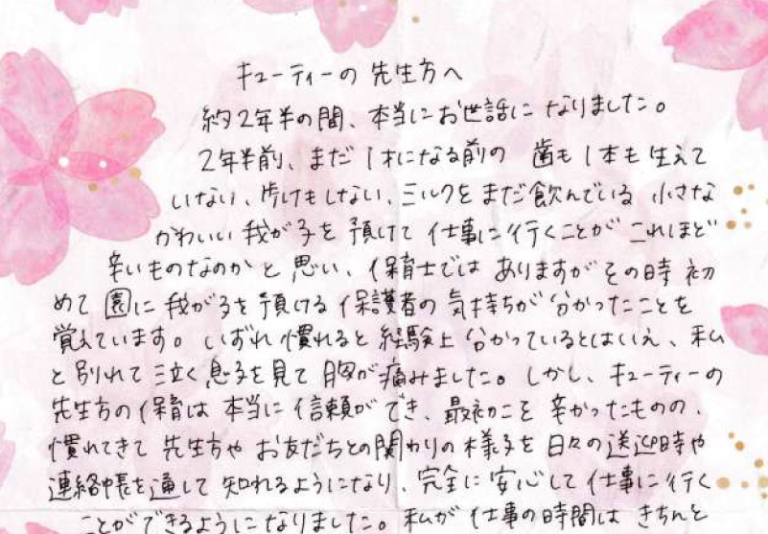 キューティーの先生方へ
約2年半の間、本当にお世話になりました。
2年半前、まだ1才になる前の歯も1本も生えて
いない、歩けもしない、ミルクをまだ飲んでいる小さな
かわいい我が子を預けて仕事に行くことがこれほど
辛いものなのかと思い、保育士ではありますがその時初
めて園に我が子を預ける保護者の気持ちが分かったことを
覚えています。いずれ慣れると経験上分かっているとはいえ、私
と別れて泣く息子を見て胸が痛みました。しかし、キューティーの
先生方の保育は本当に信頼ができ、最初こそ辛かったものの、
慣れてきて先生方やお友だちとの関わりの様子を日々の送迎時や
連絡帳を通して知れるようになり、完全に安心して仕事に行く
ことができるようになりました。私が仕事の時間はきちんと